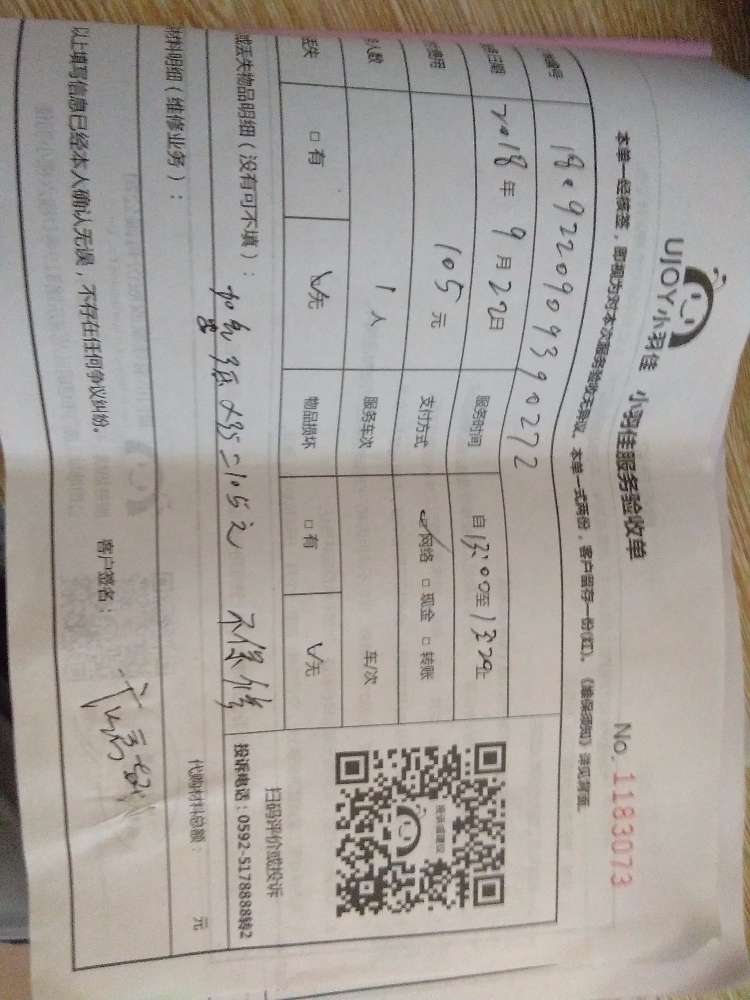 UJOY小羽佳 小羽佳服务验收单 No. 1183073
本单一经核签，即视为对本次服务验收无异议。本单一式两份，客户留存一份(红)。《维保须知》详见背面。
编号 1809220909390272
日期 2018年 9月22日 服务时间 自13:00至13:29止
费用 105元 支付方式 ☑网络 □现金 □转账
人数 1人 服务车次 车/次
丢失 □有 ☑无 物品损坏 □有 ☑无
或丢失物品明细（没有可不填）： =105元 不保修
材料明细（维修业务）： 代购材料总额： 元
以上填写信息已经本人确认无误，不存在任何争议纠纷。 客户签名：
扫码评价或投诉
投诉电话：0592-5178888转2